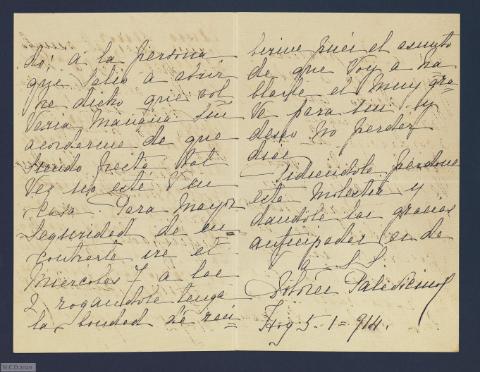 do; á la persona
que salio a abrir
he dicho que vol
veria mañana sin
acordarme de que
siendo fiesta tal
vez no esté V en
casa. Para mayor
seguridad de en=
contrarle ire el
Miercoles 7 a las
2, rogandole tenga
la bondad de reci=
birme pués el asunto
de que voy a ha
blarle es muy gra
ve para mi y
deseo no perder
dias.
Pidiendole perdone
esta molestia y
dandole las gracias
anticipadas es de
V. S. S.
Dolores
Hoy 5-1=914.